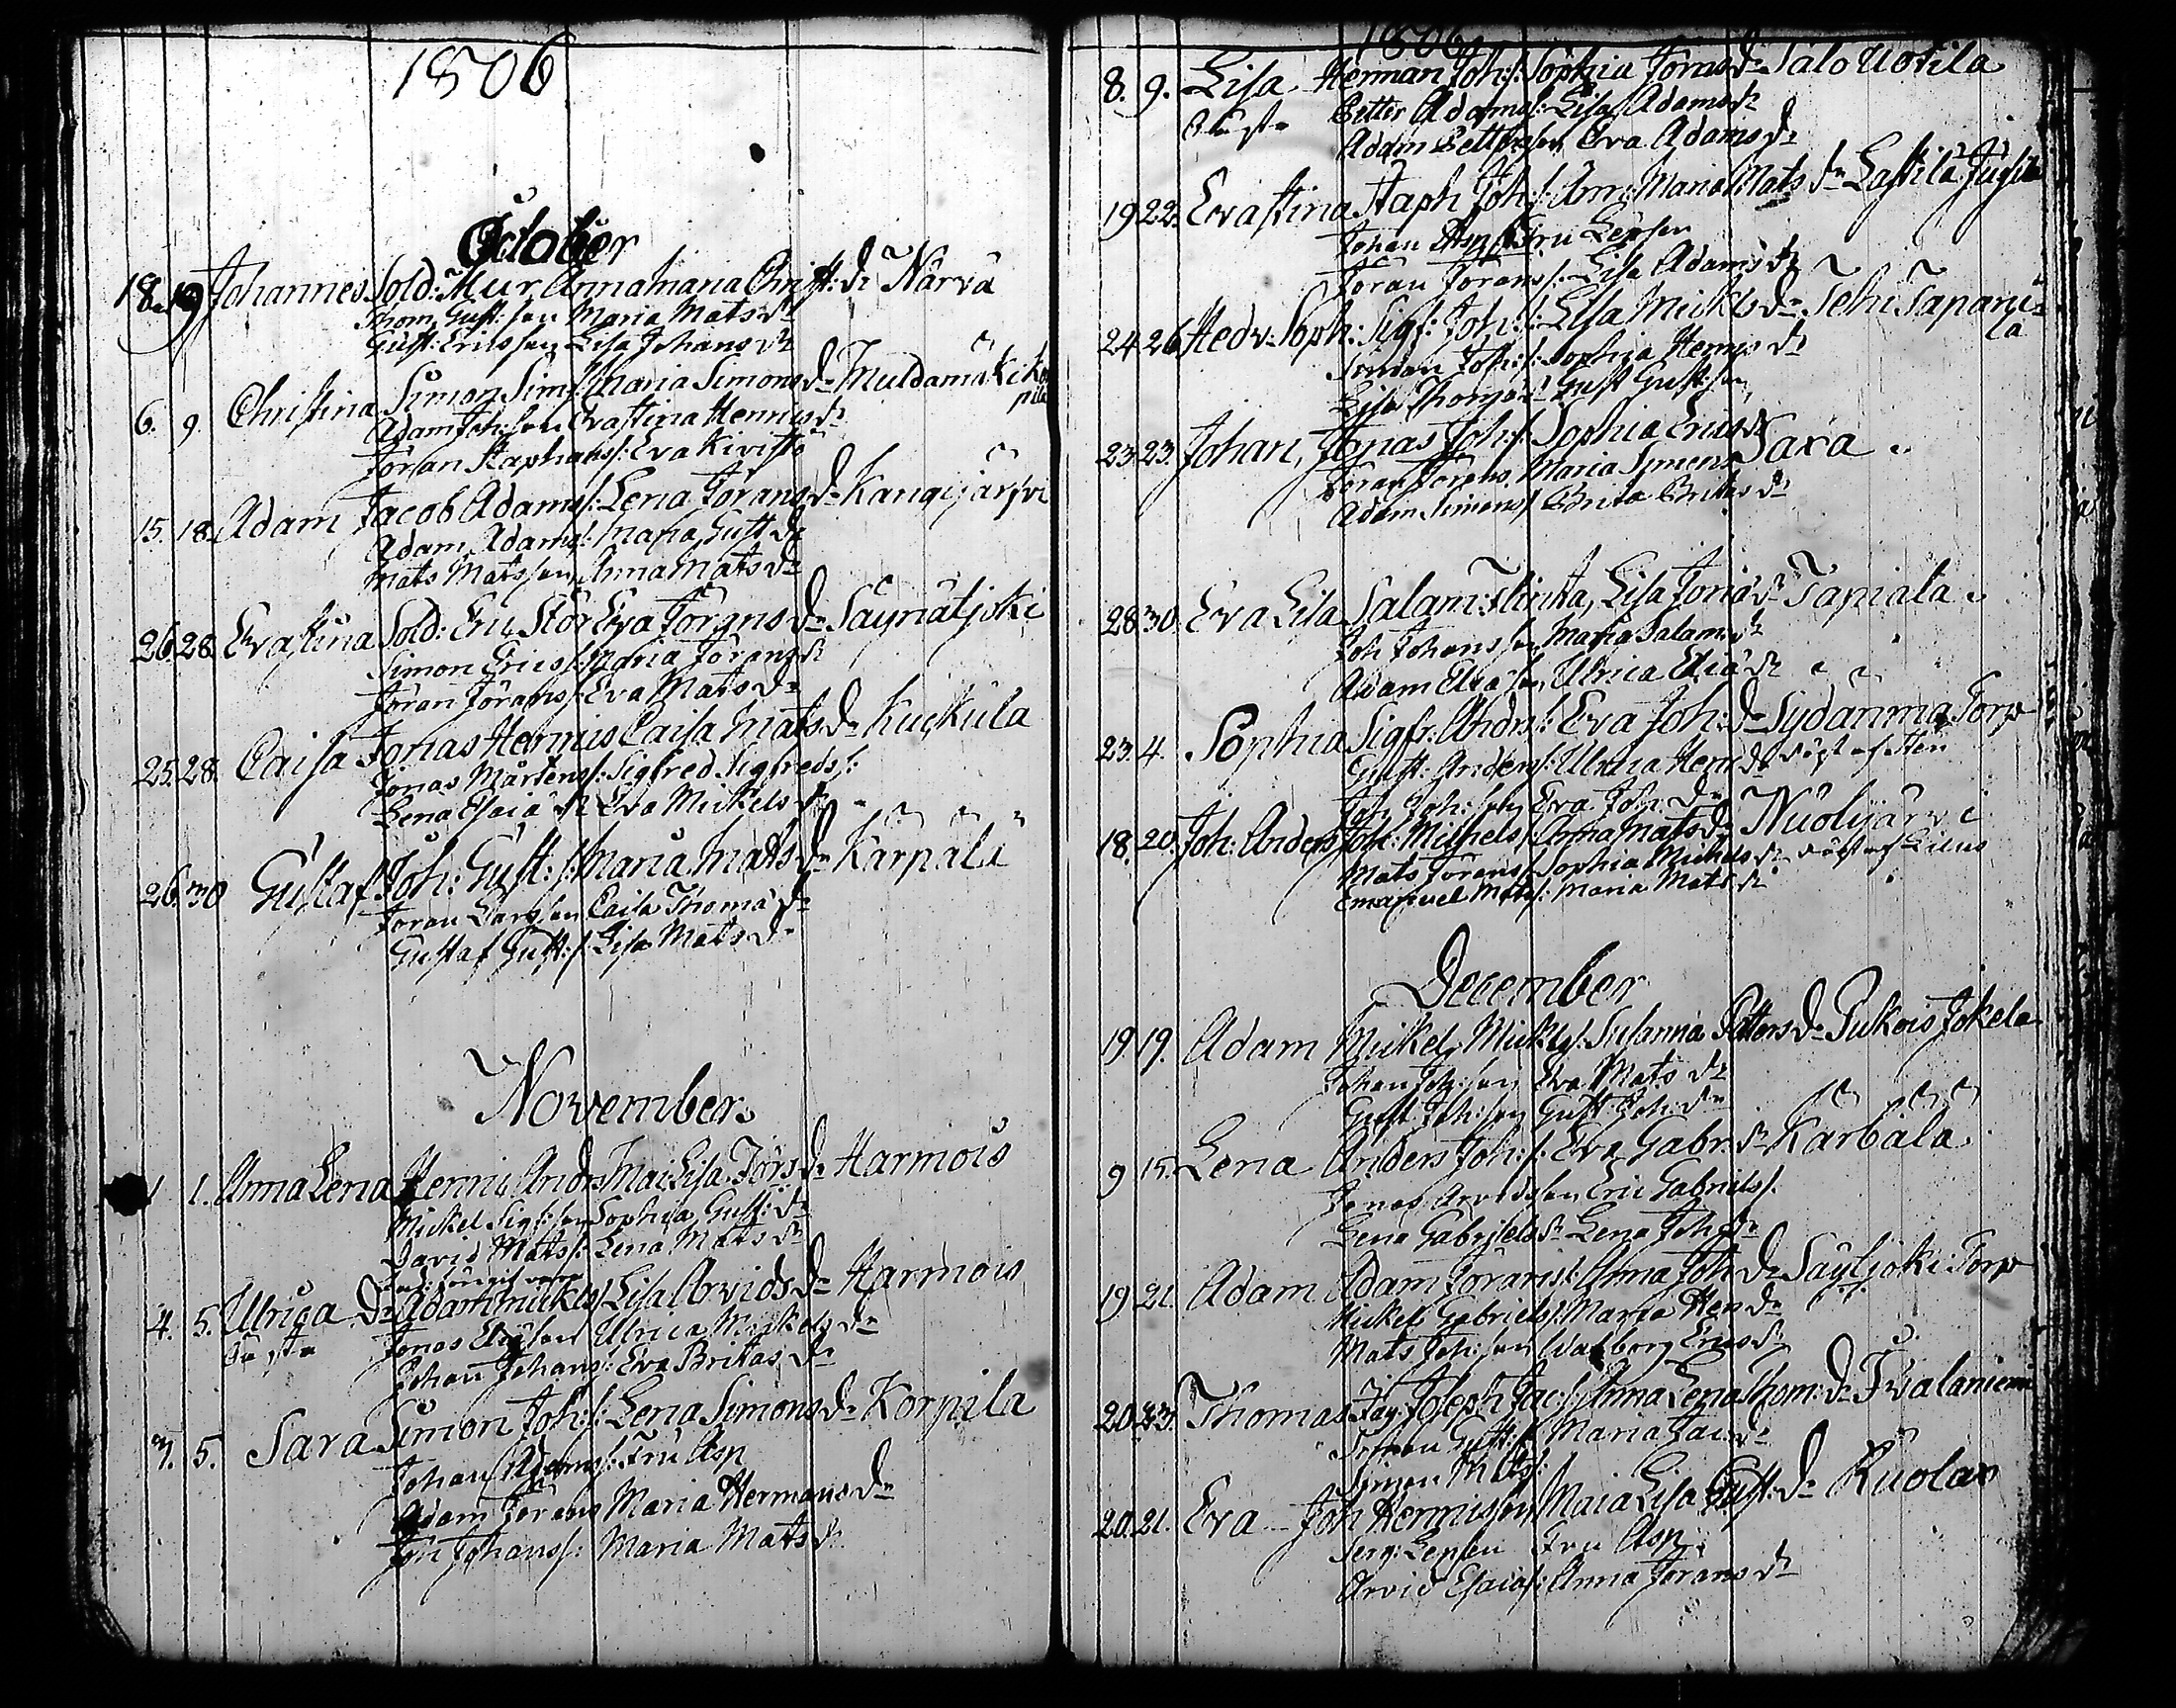 1806
October
18. 19 Johannes Sold: Mur Annamaria Christ: dr Närvä
Thom Gust: son Maria Mats dr
Gust: Ericsson Lisa Johans dr
6. 9. Christina Simon Sims: Maria Simons dr Muldamäki
Adam Joh: son Evastina Hennis dr
Jöran Staphans: Eva Kivistö
15. 18. Adam Jacob Adams: Lena Jörans dr Kangijärfvi
Adam Adams: Maria Gust dr
Mats Matsson Anna Mats dr
26. 28. Evastina Sold: Eric Stör Eva Jörans dr Säynätjoki
Simon Erics: Maria Jörans dr
Jöran Jörans: Eva Mats dr
25. 28. Caisa Jonas Hennis Caisa Mats dr Kuckula
Jonas Mårtens: Sigfred Sigfreds:
Lena Esaiä dr Eva Mickels dr
26. 30 Gustaf Joh: Gust: s: Maria Mats dr Kärpälä
Jöran Larsson Caisa Thomä dr
Gustaf Gust: s: Lisa Mats dr
November
1 1. Anna Lena Henric Andrs Mai Lisa Jörs dr Harmois
Mickel Sigf: son Sophia Gust: dr
David Mats: Lena Mats dr
4. 5. Ulrica Dr Adam Mickels: Lisa Arvids dr Harmois
Jonas Eliä son Ulrica Mickels dr
Johan Johans: Eva Britas dr
5. Sara Simon Joh: s: Lena Simons dr Korpila
Johan Adams: Fru Asp
Adam Jörans Maria Hermans dr
Joh Johans: Maria Mats dr
1806
8. 9. Lisa Herman Joh: s: Sophia Jörans dr Salo Uotila
Petter Adams: Lisa Adams dr
Adam Pettersson Eva Adams dr
19 22. Evastina Staph Joh: s: Ann: Maria Mats dr Lastila
Johan Asp Fru Lepsen
Jöran Jörans: Lisa Adams dr
24 26 Hedv: Soph: Sigf: Joh: s: Lisa Mickls dr Tehi Taparu=
la
Simon Joh: s: Sophia Hennis dr
Lisa Thomä dr Gust Gust: son
23. 23. Johan, Jonas Joh: s: Sophia Erics dr Saxa
Jöran Jörans, Maria Simons
Adam Simons: Brita Britas dr
28. 30. Eva Lisa Salam: Flinta, Lisa Jonä dr Tapiala
Joh Johansson Maria Salam: dr
Adam Eliä son Ulrica Eliä dr
23. 4. Sophia Sigfr: Andrs: Eva Joh: dr Sydänmä Torp
Gust: Anders: Ulrica Henr dr
Joh Joh: son Eva Joh dr
18. 20. Joh: Anders Joh: Michels: Anna Mats dr Nuolijärvi
Mats Jörans: Sophia Michels dr
Emanuel Mats: Maria Mats dr
December
19. 19. Adam Mickel Mickls: Susanna Petters dr Pukois Jokela
Johan Joh: son Eva Mats dr
Gust Joh: son Gust: Joh: dr
9 15. Lena Anders Joh: s: Eva Gabr: dr Kärbälä
Jonas Arvidsson Eric Gabriels:
Lena Gabriels dr Lena Joh dr
19 21. Adam Adam Jörans: Anna Joh dr Säytjoki Torp
Mickel Gabriels: Maria Hen dr
Mats Joh: son Walborg Erics dr
20. 23. Thomas Joseph Jac: s: Anna Lena Thom: dr Ivalaniemi
Simon Gust: s: Maria Jac: dr
Simon Mats:
20. 21. Eva Joh Hennisson Maia Lisa Gust: dr Ruolax
Serg: Lepsen Fru Asp
Arvid Esaias: Anna Jörans dr